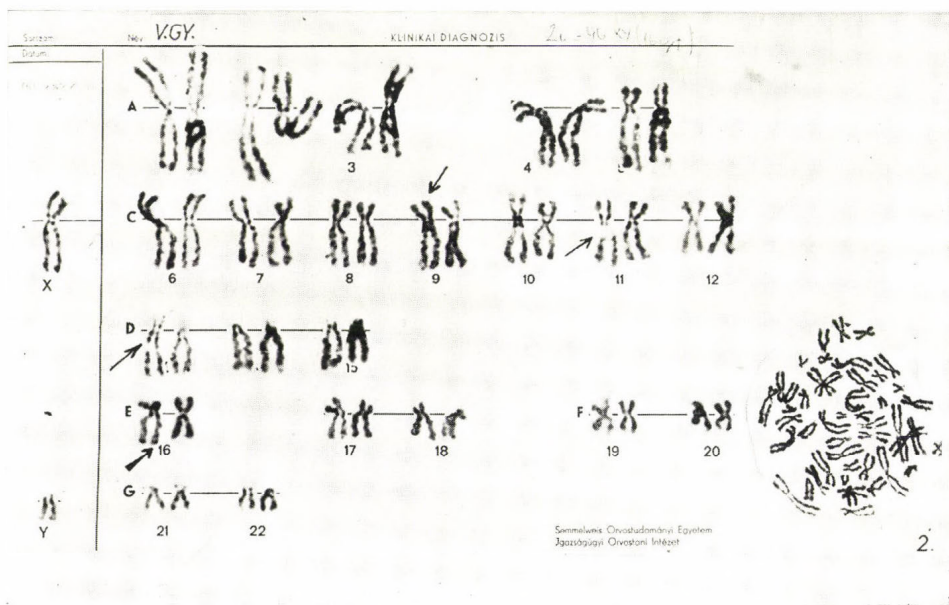 Név V.GY. KLINIKAI DIAGNOZIS
Dátum:
A
3 4
C
X 6 7 8 9 10 11 12
D
15
E F
16 17 18 19 20
G
Y 21 22
Semmelweis Orvostudományi Egyetem
Igazságügyi Orvostani Intézet
2.